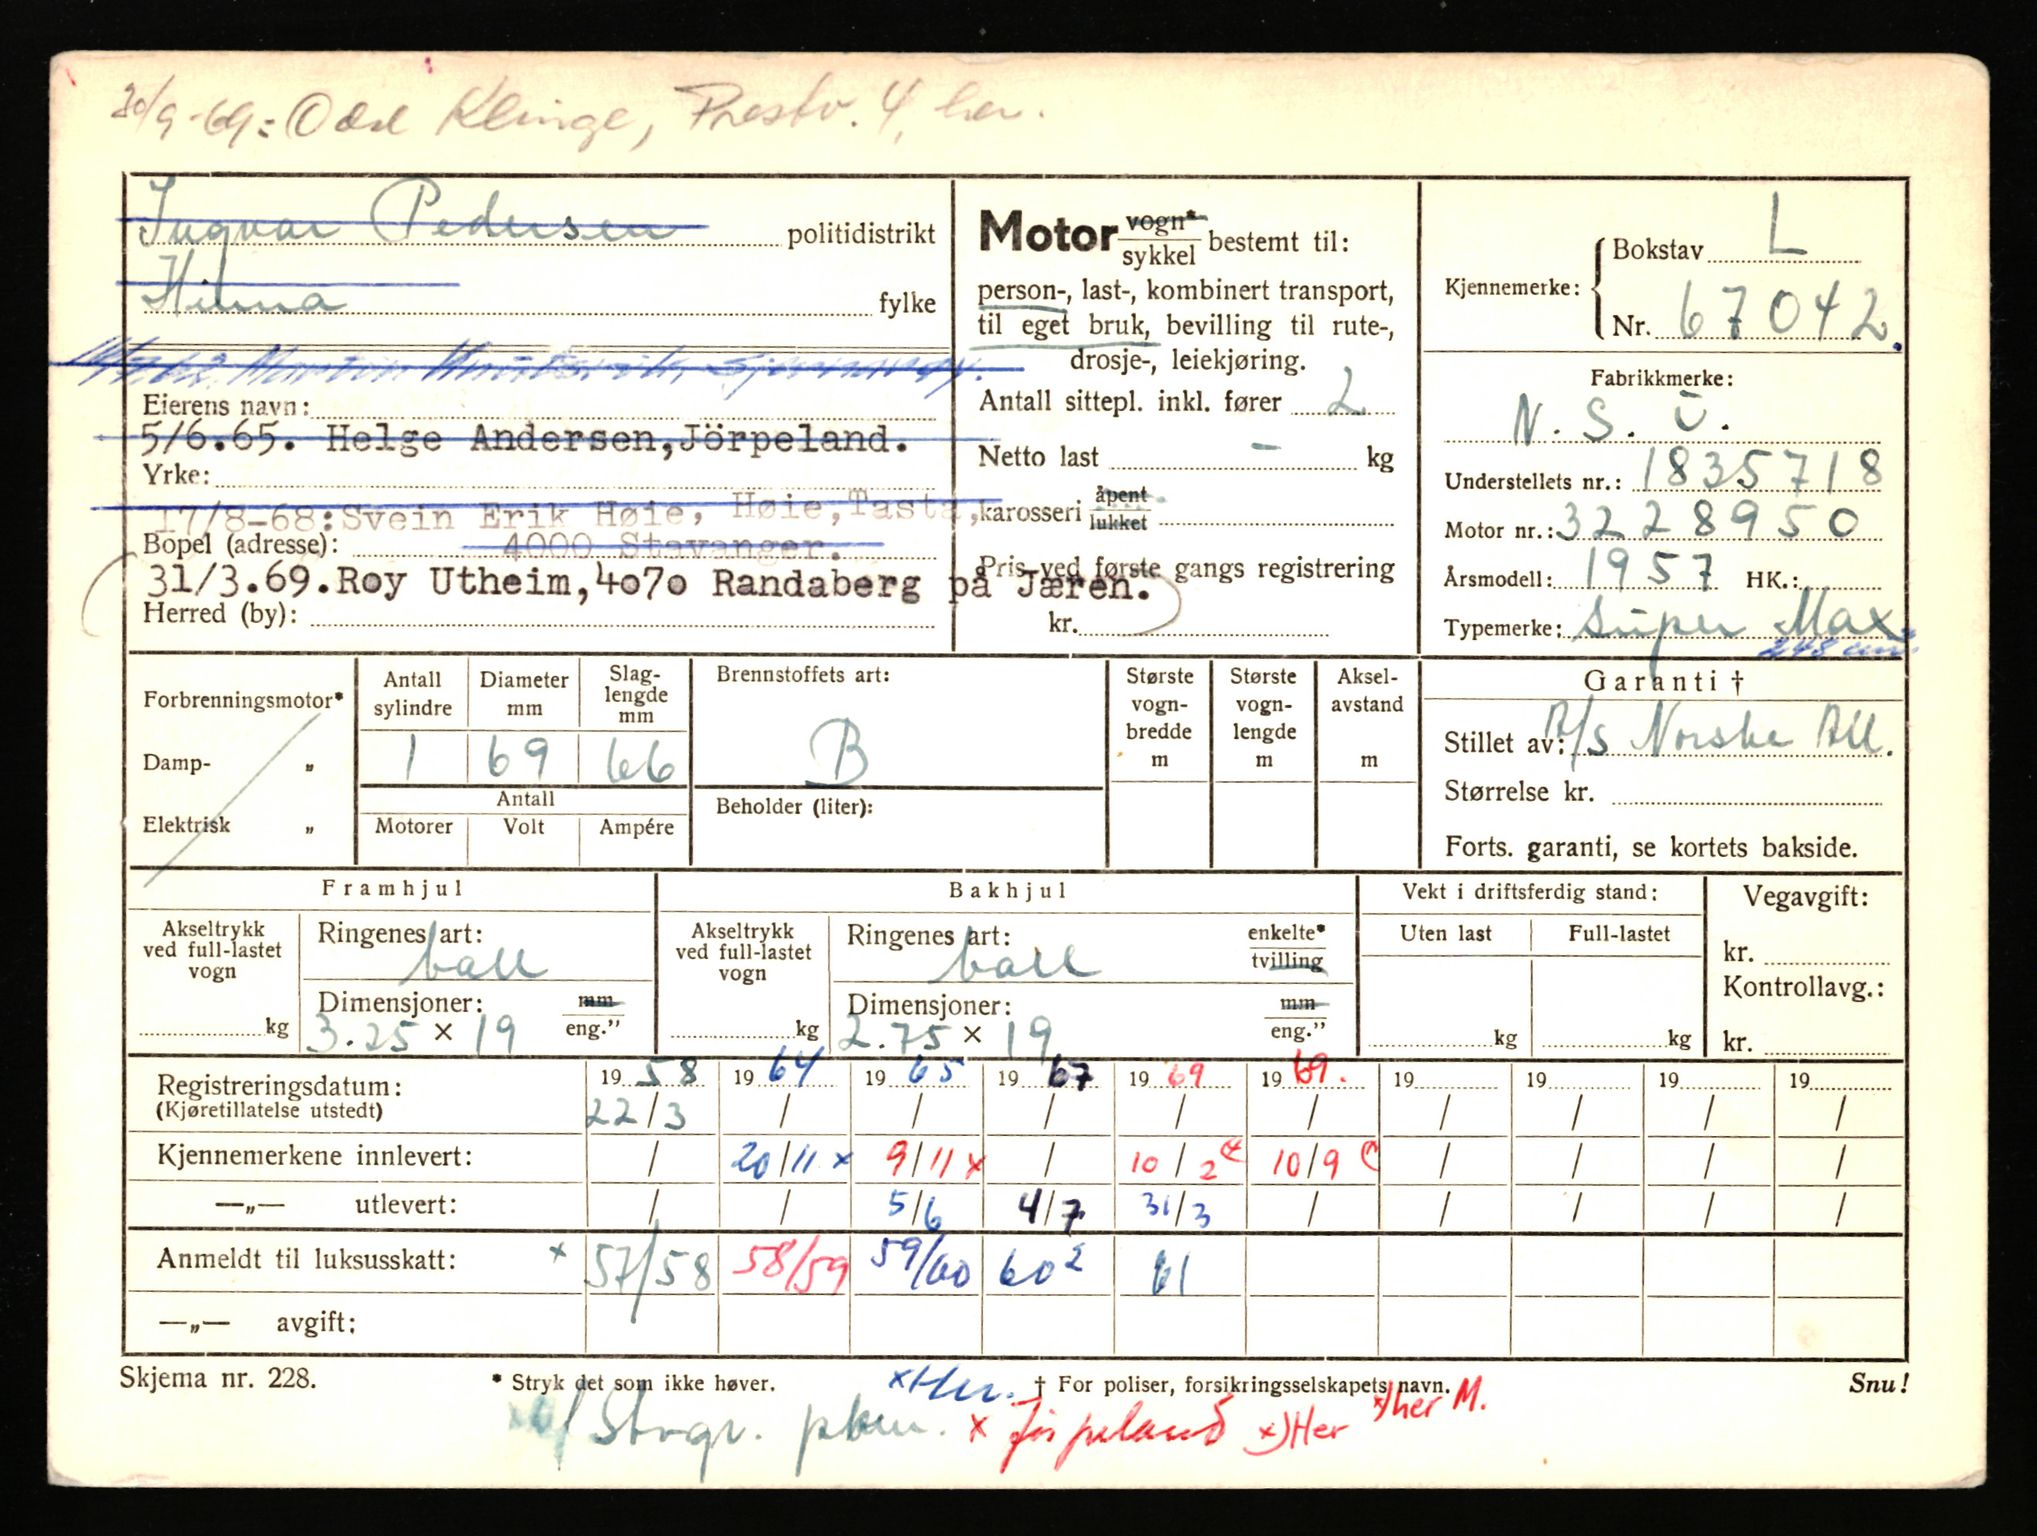 30/9-69: Odd Klinge, Prestv. 4, her.
Ingvar Pedersen politidistrikt
Hinna fylke
Martin
Eierens navn:
5/6.65. Helge Andersen, Jörpeland.
Yrke:
17/8-68: Svein Erik Høie, Høie, Tasta,
Bopel (adresse): 4000 Stavanger.
31/3.69. Roy Utheim, 4070 Randaberg på Jæren.
Herred (by):
Motor vogn* / sykkel bestemt til:
person-, last-, kombinert transport,
til eget bruk, bevilling til rute-,
drosje-, leiekjøring.
Antall sittepl. inkl. fører 2
Netto last - kg
karosseri åpent / lukket
Pris ved første gangs registrering
kr.
Kjennemerke: Bokstav L
Nr. 67042
Fabrikkmerke:
N.S.U.
Understellets nr.: 1835718
Motor nr.: 3228950
Årsmodell: 1957 HK.:
Typemerke: Super Max
248 cm³
Forbrenningsmotor*
Damp- „
Elektrisk „
Antall sylindre Diameter mm Slag-lengde mm
1 69 66
Antall
Motorer Volt Ampére
Brennstoffets art:
B
Beholder (liter):
Største vogn-bredde m
Største vogn-lengde m
Aksel-avstand m
Garanti †
Stillet av: A/S Norske All.
Størrelse kr.
Forts. garanti, se kortets bakside.
Framhjul
Akseltrykk ved full-lastet vogn
kg
Ringenes art:
ball
Dimensjoner: mm / eng.”
3.25 × 19
Bakhjul
Akseltrykk ved full-lastet vogn
kg
Ringenes art: enkelte* / tvilling
ball
Dimensjoner: mm / eng.”
2.75 × 19
Vekt i driftsferdig stand:
Uten last Full-lastet
kg kg
Vegavgift:
kr.
Kontrollavg.:
kr.
Registreringsdatum: 1958 1964 1965 1967 1969 1969. 19 19 19 19
(Kjøretillatelse utstedt) 22/3 / / / / / / / / /
Kjennemerkene innlevert: / 20/11 x 9/11 x / 10/2 10/9 / / / /
—„— utlevert: / / 5/6 4/7 31/3 / / / / /
Anmeldt til luksusskatt: x 57/58 58/59 59/60 60² 61
—„— avgift:
Skjema nr. 228. * Stryk det som ikke høver. x Her. † For poliser, forsikringsselskapets navn. Snu!
Stvgr. pkm. x Jørpeland x) Her x) her M.